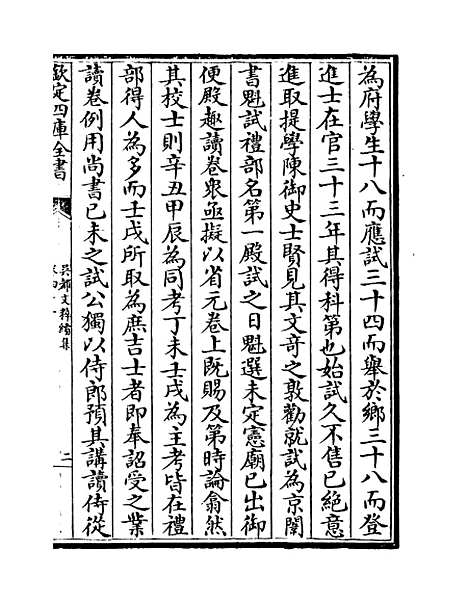 為府學生十八而應試三十四而舉於鄉三十八而登
進士在官三十三年其得科第也始試久不售已絕意
進取提學陳御史士賢見其文奇之敦勸就試為京闈
書魁試禮部名第一殿試之日魁選未定憲廟已出御
便殿趣讀卷衆亟擬以省元卷上既賜及第時論翕然
其校士則辛丑甲辰為同考丁未壬戌為主考皆在禮
部得人為多而壬戌所取為庶吉士者即奉詔受之業
讀卷例用尚書己未之試公獨以侍郎預其講讀侍從
欽定四庫全書
吳都文粹續集
二